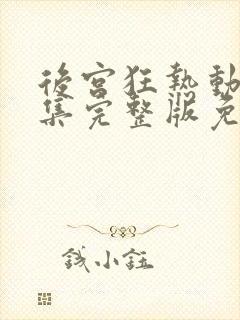 後宮狂熱動
集完整版免
錢小鈺